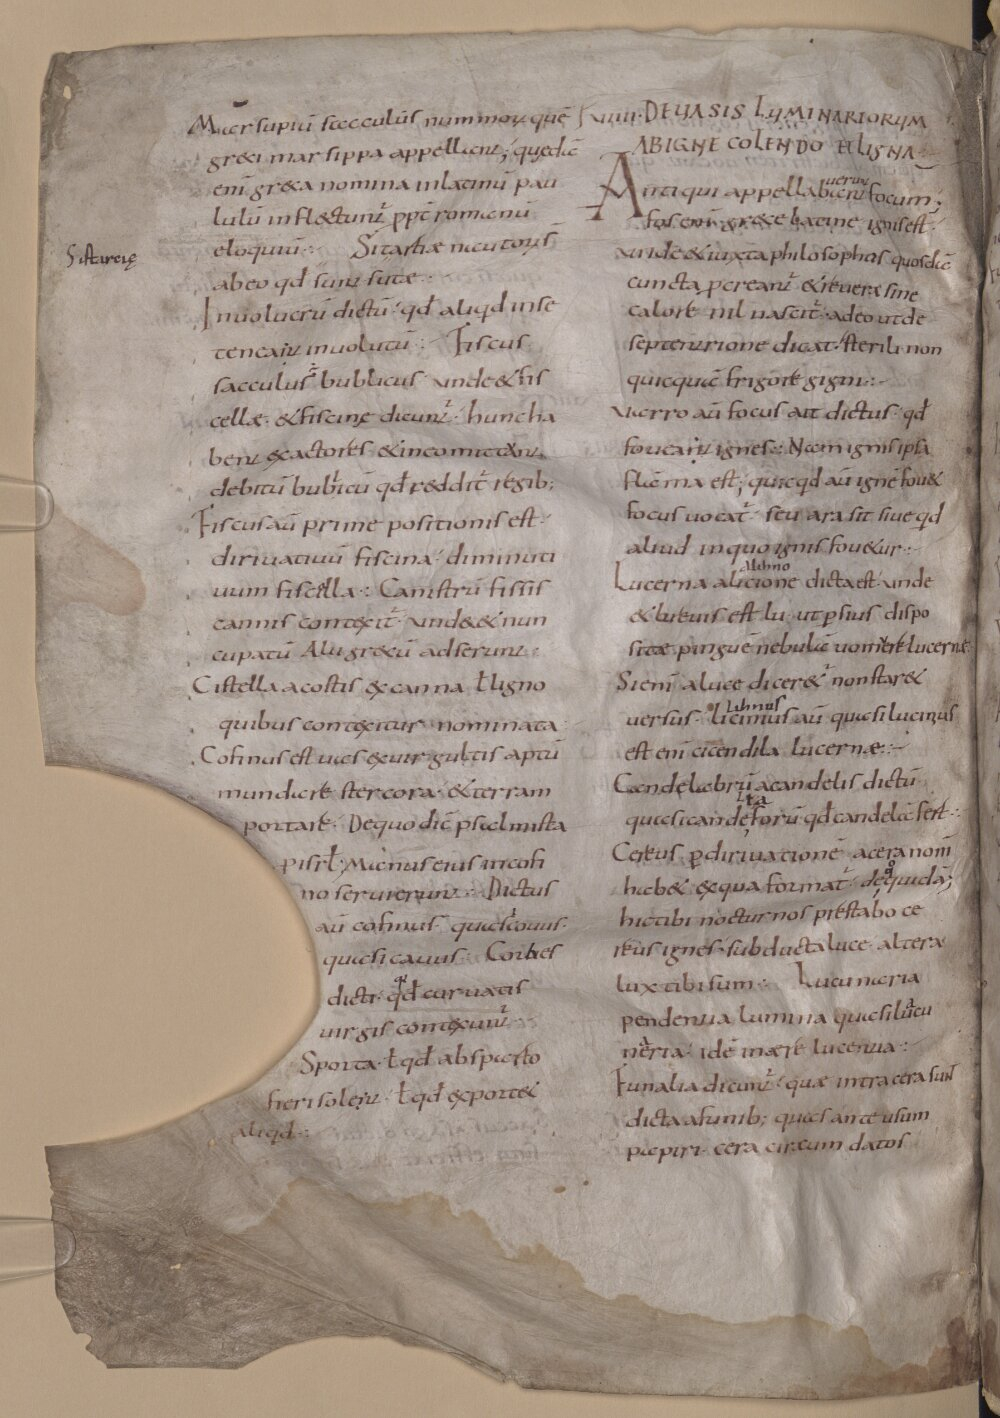 Marsupiū sacculus nummorꝫ quē
greci marsippa appellant; quędā
eni greca nomina inlatinū pau
lulū inflectunt̃ ꝓpt̃ romanū
eloquiū:· Sitarhiæ nautorꝫ
Sistarcię
abeo qđ sunt sutæ·
Inuolucrū dictū· qđ aliqđ inse
teneant inuolutū:· Fiscus
sacculus · bublicus unde & fis
cellæ· & fiscine dicunt̃· hunc ha
bent exactores & ineo mittant
debitū bublicū qđ reddit̃ regib;
Fiscus aū prime positionis est·
diriuatiuū fiscina· diminuti
uum fiscella:· Canistrū fissis
cannis contexit̃· unde & nun
cupatū Alii grecū adserunt:·
Cistella acostis ex canna ł ligno
quibus contexitur nominata
Cofinus est uas ex uirgultis aptū
mundare stercora· & terram
portare· Dequo dic̄ psalmista
pisrł· Manus eius incofi
no seruierunt:· Dictus
aū cofinus· quasi couus·
quasi cauus:· Corbes
dicti· qđ curuatis
uirgis contexunt̃·
Sporta· ł qđ absparto
fieri solent· ł qđ exportet
aliqđ:·
xuiiii· DEUASIS LUMINARIORUM
ABIGNE COLENDO ET LIGNA
uerunt
Antiqui appellabant focum;
fos enī grece latine ignis est·
unde & iuxta philosophos quosdā
cuncta ꝓcreant̃ & reuera sine
calore nil nascit̃· adeo ut de
septentrione dicat· sterili non
quicquā frigore gigni:·
Uarro aū focus ait dictus· qđ
foueant ignes:· Nam ignis ipsa
flāma est; quicqđ aū igne fouet
focus uocat̃· seu ara sit siue qđ
aliud inquo ignis fouetur:·
alihno
Lucerna alicione dicta est· unde
& breuis est lu· ut ꝑsius dispo
sitæ pinguē nebulā uomere lucerne
Si enī a luce diceret̃ non staret
lihnus
uersus· licinius aū quasi lucinus
est enī cicendila lucernæ:·
Candelabrū acandelis dictū·
quasi candeforū qđ candelā fert·
Cereus ꝑdiriuationē acera nom̄
habet exqua format̃· dequidā;
hic tibi nocturnos prestabo ce
reus ignes· subducta luce· altera
lux tibi sum:· Lucunaria
pendentia lumina quasi lucu
naria· idē inære lucentia:·
Funalia dicunt̃· quæ intra cera sunt
dicta afunib; quas ante usum
papiri· cera circum datos